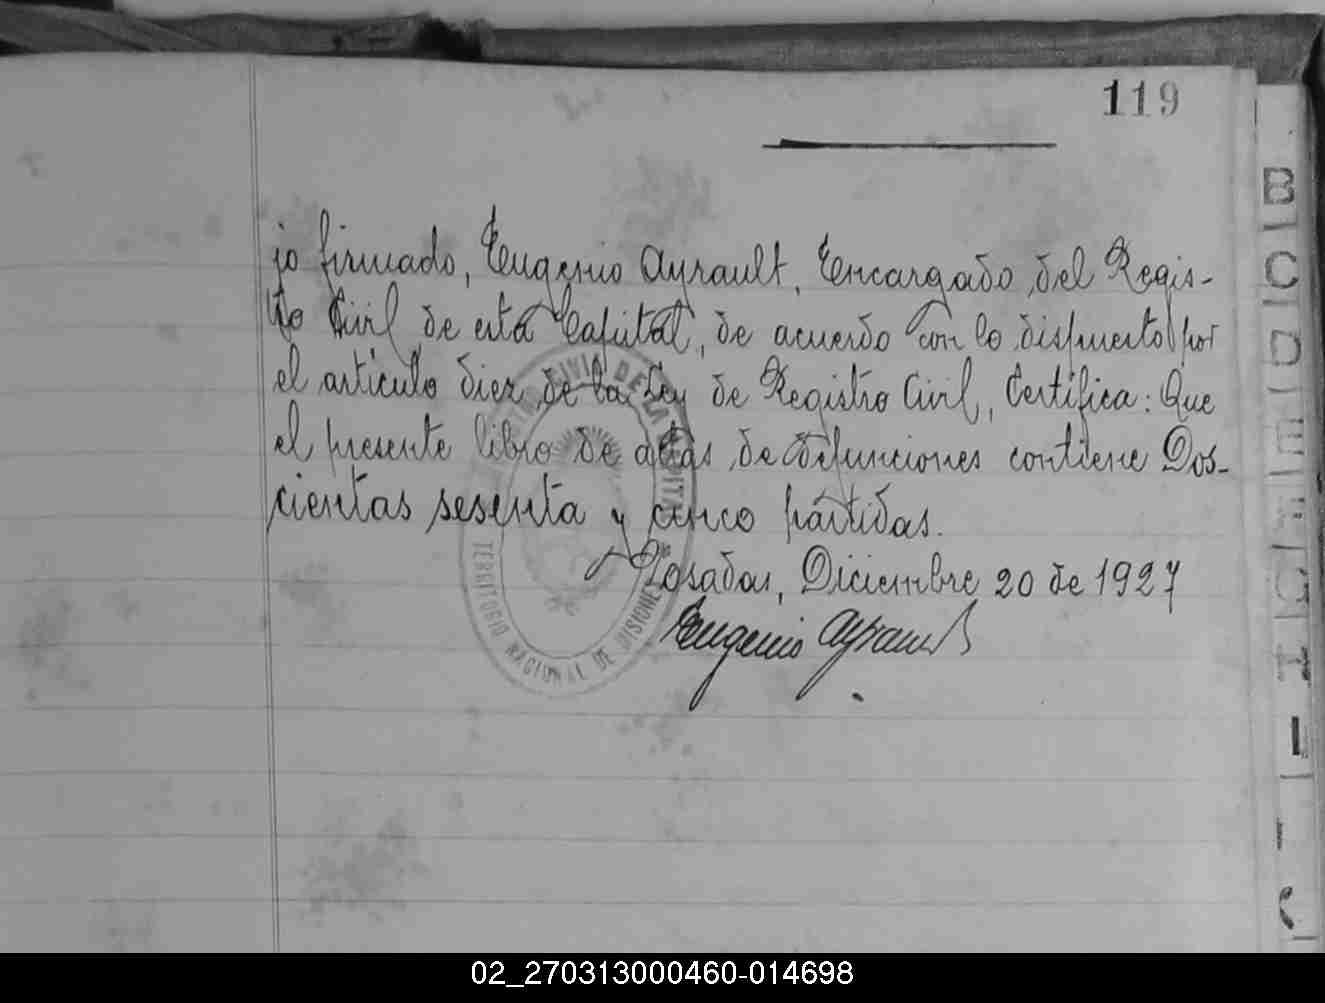 119
jo firmado, Eugenio Ayrault, Encargado del Regis-
tro Civil de esta Capital, de acuerdo con lo dispuesto por
el artículo diez de la Ley de Registro Civil, Certifica: Que
el presente libro de actas de defunciones contiene Dos-
cientas sesenta y cinco partidas.
Posadas, Diciembre 20 de 1927
Eugenio Ayrault
CIVIL DE LA CAPITAL
TERRITORIO NACIONAL DE MISIONES
B
C
D
02_270313000460-014698